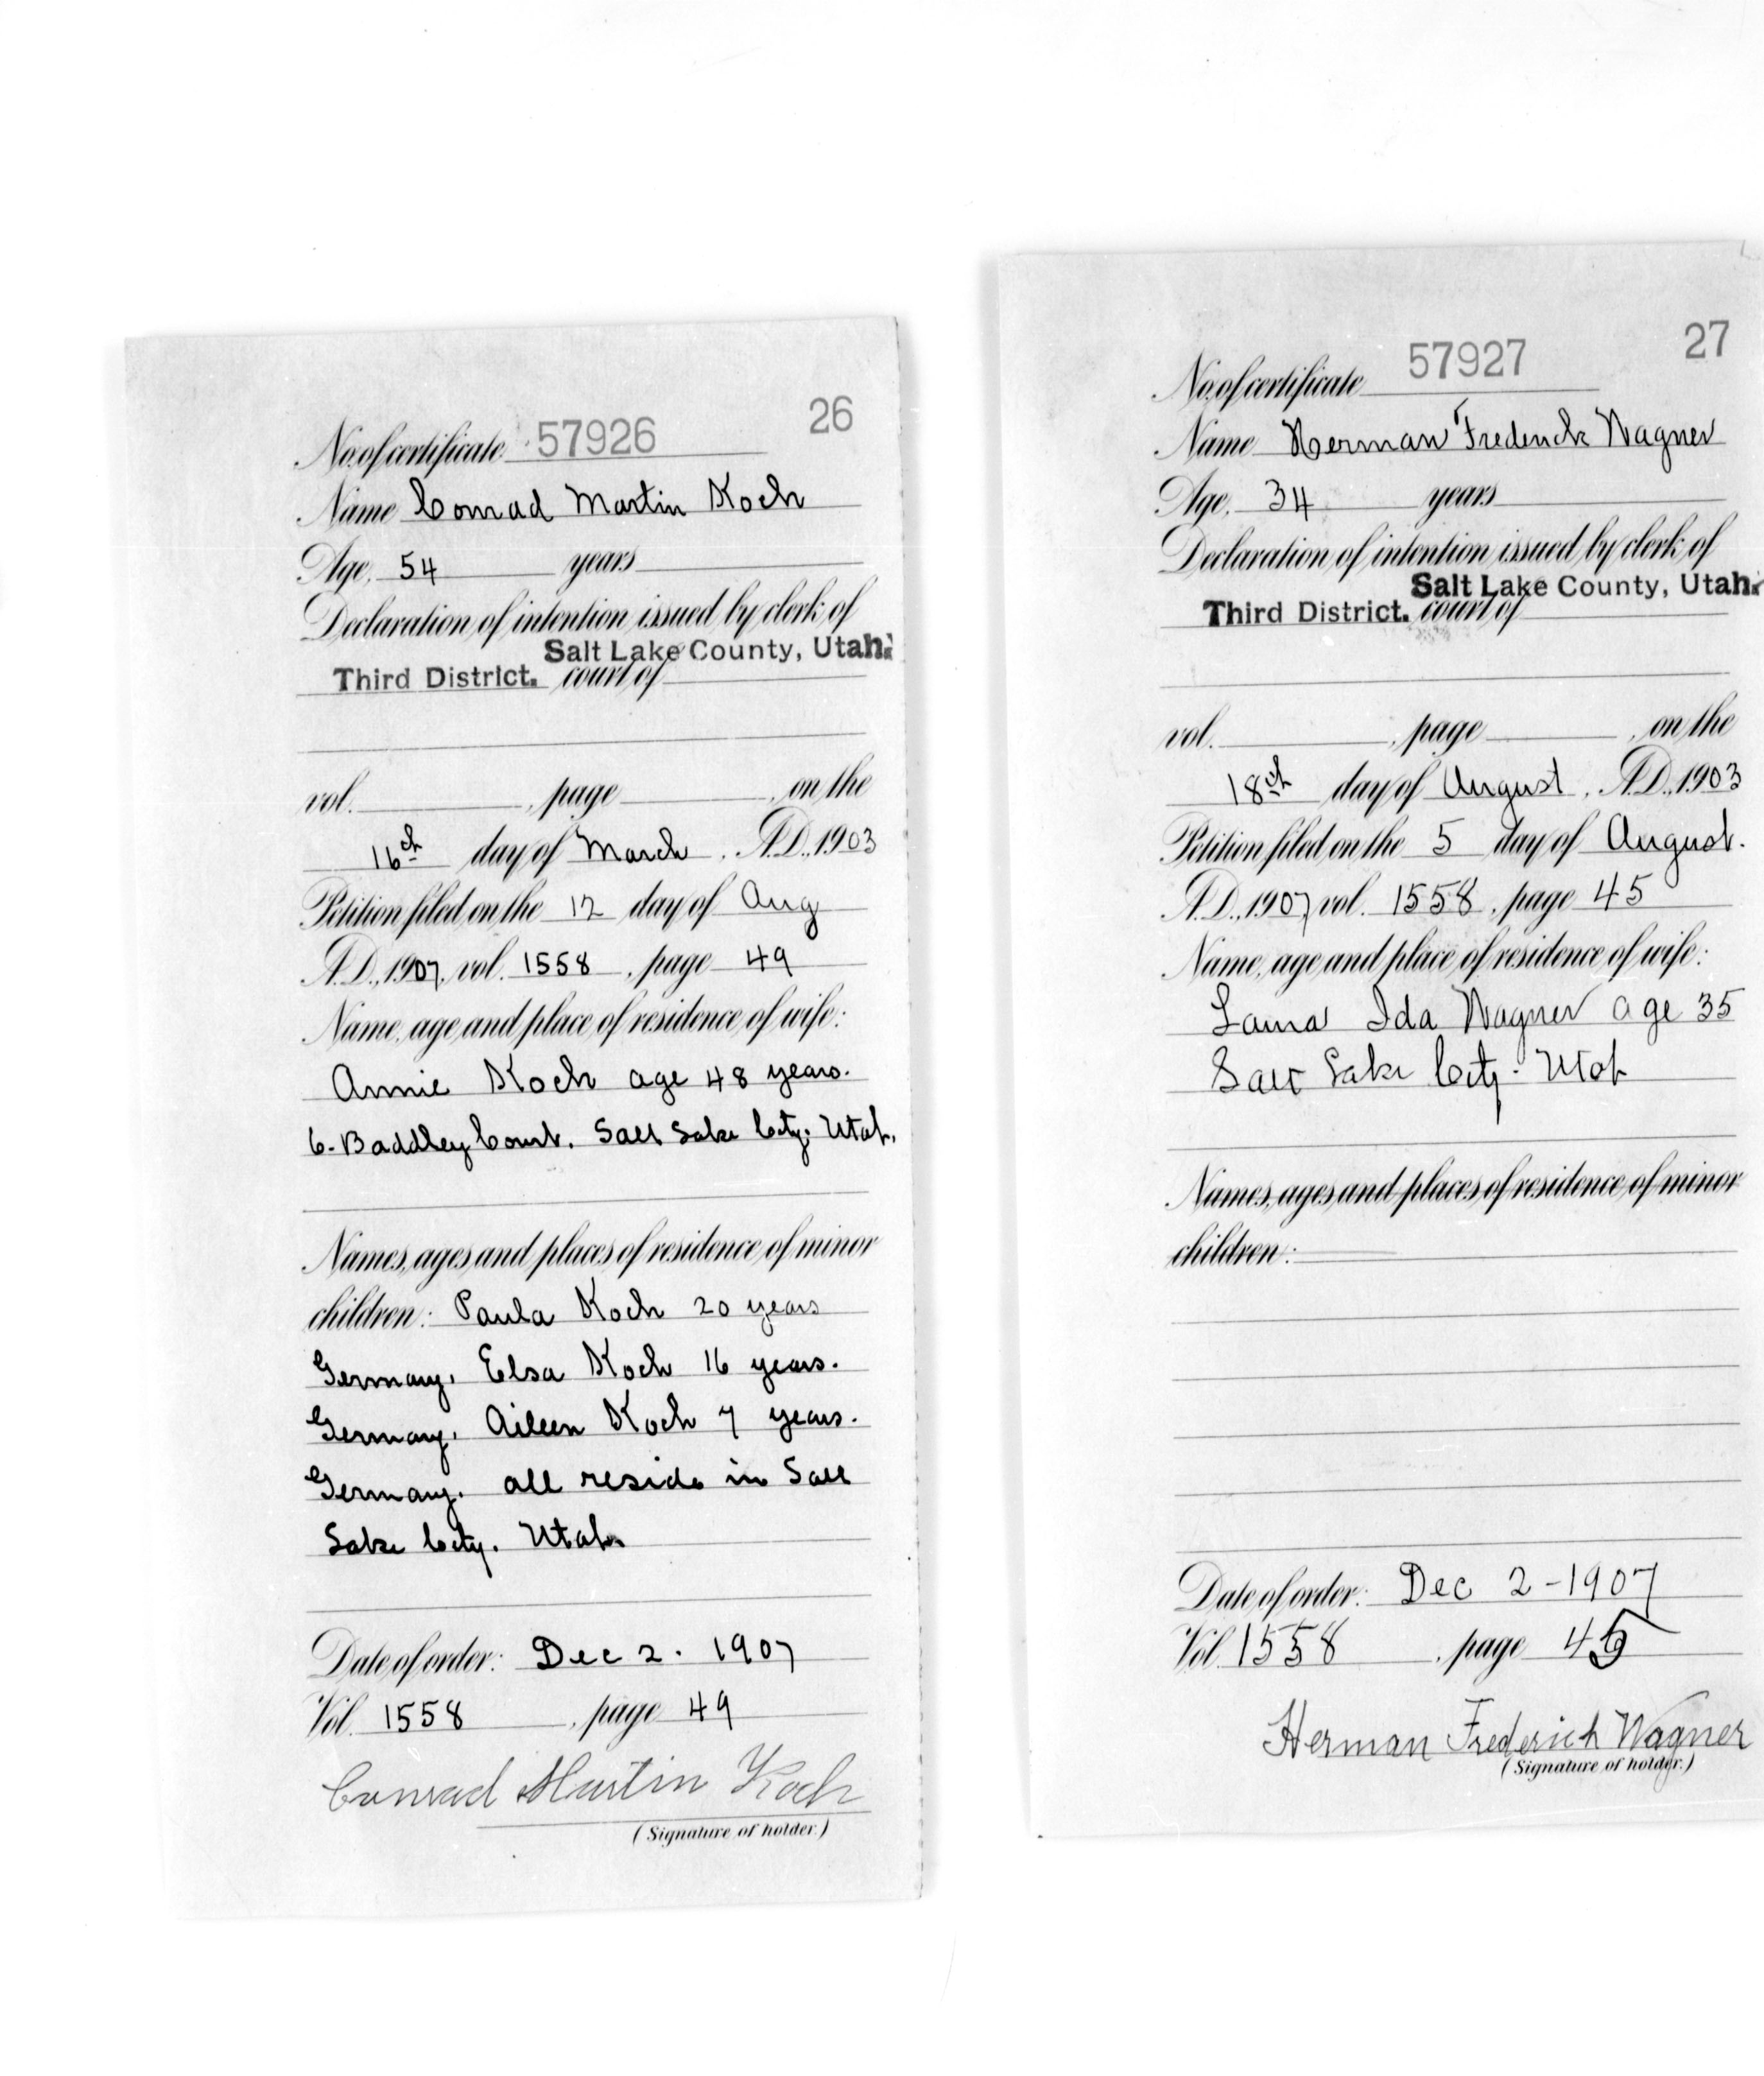 26
No. of certificate 57926
Name Conrad Martin Koch
Age, 54 years
Declaration of intention issued by clerk of
Salt Lake County, Utah.
Third District. court of
vol. , page , on the
16th day of March, A.D., 1903
Petition filed on the 12 day of Aug
A.D., 1907, vol. 1558, page 49
Name, age and place of residence of wife:
Annie Koch age 48 years.
6. Baddley Court. Salt Lake City. Utah.
Names, ages and places of residence of minor
children: Paula Koch 20 years
Germany. Elsa Koch 16 years.
Germany. Aileen Koch 7 years.
Germany. all reside in Salt
Lake City. Utah.
Date of order: Dec 2. 1907
Vol. 1558, page 49
Conrad Martin Koch
(Signature of holder.)
27
No. of certificate 57927
Name Herman Frederick Wagner
Age, 34 years
Declaration of intention issued by clerk of
Salt Lake County, Utah.
Third District. court of
vol. , page , on the
18th day of August, A.D., 1903
Petition filed on the 5 day of August.
A.D., 1907, vol. 1558, page 45
Name, age and place of residence of wife:
Laura Ida Wagner age 35
Salt Lake City. Utah
Names, ages and places of residence of minor
children:
Date of order: Dec 2-1907
Vol. 1558, page 45
Herman Frederich Wagner
(Signature of holder.)